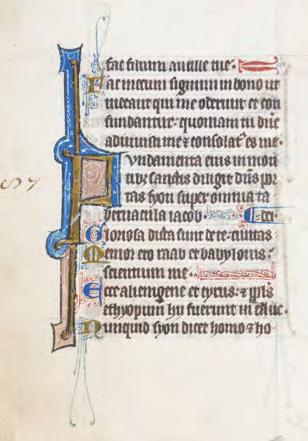 fac filium ancille tue.
Fac mecum signum in bono ut
videant qui me oderunt et con
fundantur: quoniam tu dñe
adiuvisti me ⁊ consolatꝰ es me.
Fundamenta eius in mon
tibꝫ sanctis diligit dñs por
tas syon super omnia ta
bernacula iacob. dei.
Gloriosa dicta sunt de te civitas
Memor ero raab et babylonis:
scientium me.
Ecce alienigene et tyrus: ⁊ ppls
ethyopum hy fuerunt in illuc.
Nunquid syon dicet homo ⁊ ho